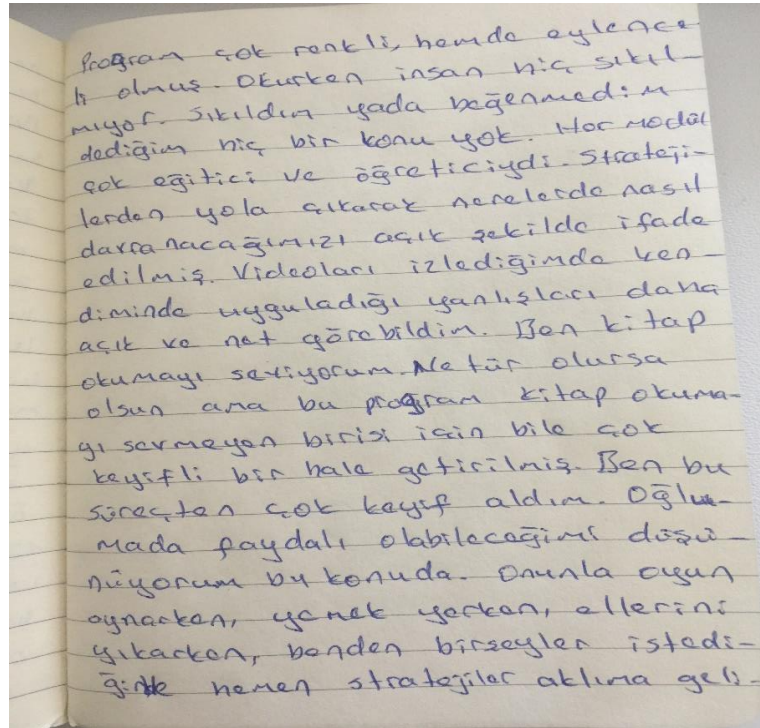 Program çok renkli, hemde eylence
li olmuş. Okurken insan hiç sıkıl-
mıyor. Sıkıldım yada beğenmedim
dediğim hiç bir konu yok. Her modül
çok eğitici ve öğreticiydi. Strateji-
lerden yola çıkarak nerelerde nasıl
davranacağımızı açık şekilde ifade
edilmiş. Videoları izlediğimde ken-
diminde uyguladığı yanlışları daha
açık ve net görebildim. Ben kitap
okumayı seviyorum. Ne tür olursa
olsun ama bu program kitap okuma-
yı sevmeyen birisi için bile çok
keyifli bir hale getirilmiş. Ben bu
süreçten çok keyif aldım. Oğlu-
mada faydalı olabileceğimi düşü-
nüyorum bu konuda. Onunla oyun
oynarken, yemek yerken, ellerini
yıkarken, benden birşeyler istedi-
ğinde hemen stratejiler aklıma geli-